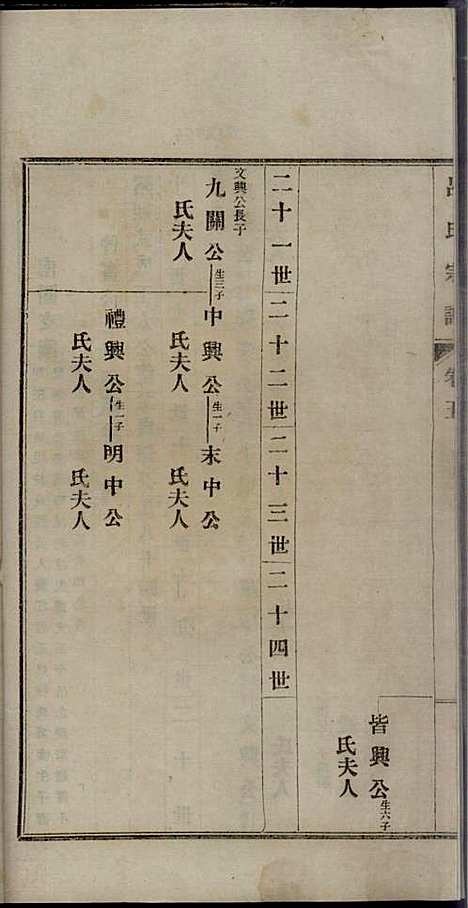 氏宗譜 卷五
皆興公生六子
氏夫人
二十一世二十二世二十三世二十四世
文興公長子
九關公生三子中興公生一子末中公
氏夫人 氏夫人 氏夫人
禮興公生一子明中公
氏夫人 氏夫人